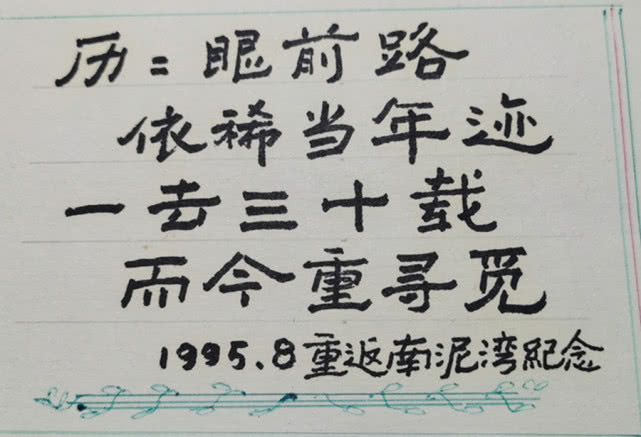 历〻眼前路
依稀当年迹
一去三十载
而今重寻觅
1995.8重返南泥湾紀念